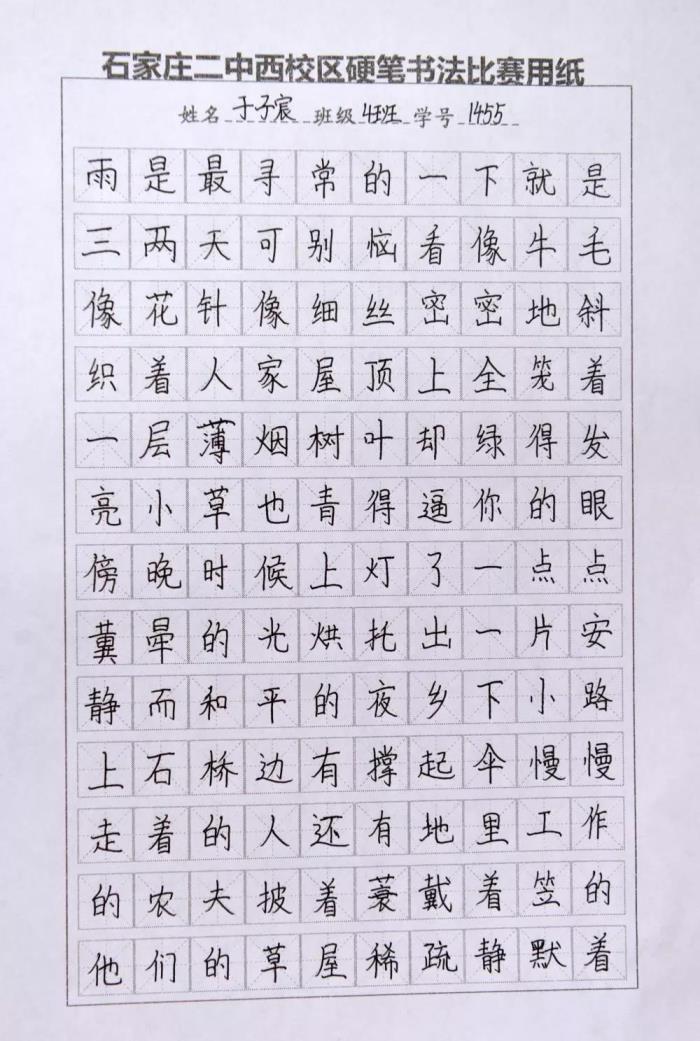 石家庄二中西校区硬笔书法比赛用纸
姓名 于子宸 班级 4班 学号 1455
雨是最寻常的一下就是
三两天可别恼看像牛毛
像花针像细丝密密地斜
织着人家屋顶上全笼着
一层薄烟树叶却绿得发
亮小草也青得逼你的眼
傍晚时候上灯了一点点
黄晕的光烘托出一片安
静而和平的夜乡下小路
上石桥边有撑起伞慢慢
走着的人还有地里工作
的农夫披着蓑戴着笠的
他们的草屋稀疏静默着